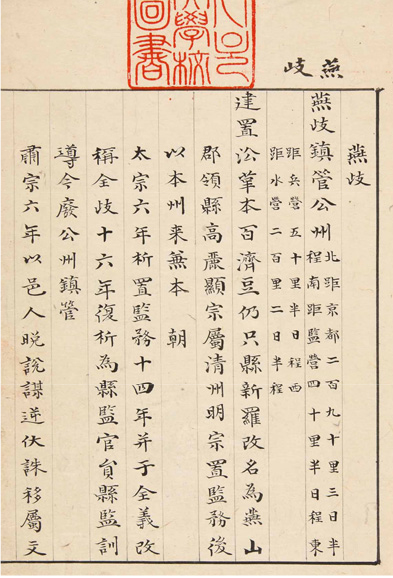 燕歧
燕歧
燕歧鎮管公州
北距京都二百九十里三日半
程南距監營四十里半日程東
距兵營五十里半日程西
距水營二百里二日半程
建置沿革本百濟豆仍只縣新羅改名為燕山
郡領縣高麗顯宗屬清州明宗置監務後
以本州来兼本 朝
太宗六年析置監務十四年并于全義改
稱全歧十六年復析為縣監官貟縣監訓
導今廢公州鎮管
肅宗六年以邑人晩說謀逆伏誅移屬文
學校
圖書